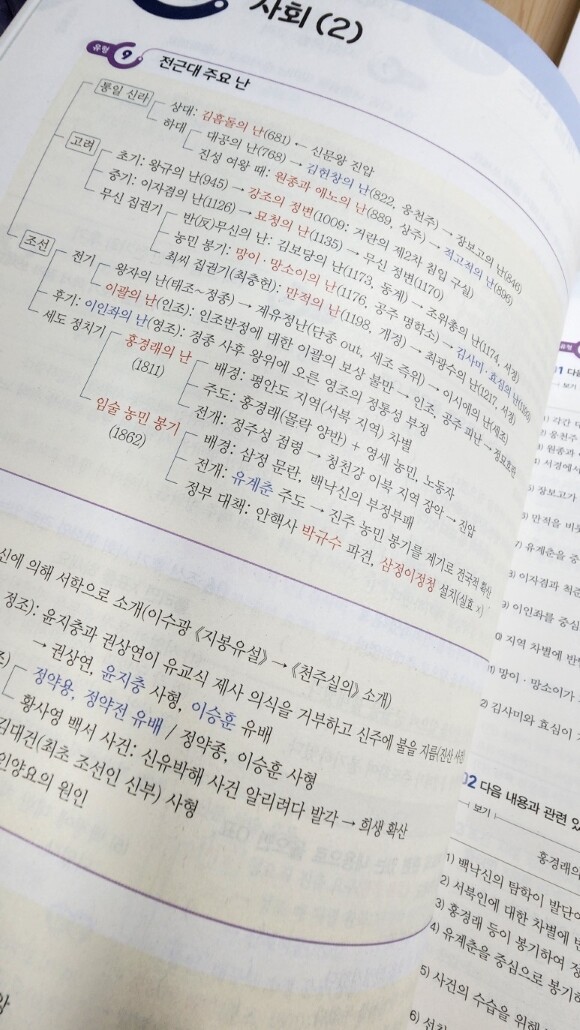 사회(2)
유형 9 전근대 주요 난
통일 신라
상대: 김흠돌의 난(681) ← 신문왕 진압
하대
대공의 난(768) → 김헌창의 난(822, 웅천주) → 장보고의 난(846)
진성 여왕 때: 원종과 애노의 난(889, 상주) → 적고적의 난(896)
고려
초기: 왕규의 난(945) → 강조의 정변(1009: 거란의 제2차 침입 구실)
중기: 이자겸의 난(1126) → 묘청의 난(1135) → 무신 정변(1170)
무신 집권기
반(反)무신의 난: 김보당의 난(1173, 동계) → 조위총의 난(1174, 서경)
농민 봉기: 망이·망소이의 난(1176, 공주 명학소) → 김사미·효심의 난
최씨 집권기(최충헌): 만적의 난(1198, 개경) → 최광수의 난(1217, 서경)
조선
전기
왕자의 난(태조~정종) → 계유정난(단종 out, 세조 즉위) → 이시애의 난(세조)
이괄의 난(인조): 인조반정에 대한 이괄의 보상 불만 → 인조, 공주 피난 →
후기: 이인좌의 난(영조): 경종 사후 왕위에 오른 영조의 정통성 부정
세도 정치기
홍경래의 난
(1811)
배경: 평안도 지역(서북 지역) 차별
주도: 홍경래(몰락 양반) + 영세 농민, 노동자
전개: 정주성 점령 → 청천강 이북 지역 장악 → 진압
임술 농민 봉기
(1862)
배경: 삼정 문란, 백낙신의 부정부패
전개: 유계춘 주도 → 진주 농민 봉기를 계기로 전국적 확산
정부 대책: 안핵사 박규수 파견, 삼정이정청 설치(실효 x)
신에 의해 서학으로 소개(이수광 《지봉유설》 → 《천주실의》 소개)
정조): 윤지충과 권상연이 유교식 제사 의식을 거부하고 신주에 불을 지름(진산 사건)
→ 권상연, 윤지충 사형, 이승훈 유배
정약용, 정약전 유배 / 정약종, 이승훈 사형
황사영 백서 사건: 신유박해 사건 알리려다 발각 → 희생 확산
김대건(최초 조선인 신부) 사형
인양요의 원인
01 다음
보기
각간 대
웅천주
원종과
서경에서
장보고가
만적을 비롯
유계춘을 중
이자겸과 척준
이인좌를 중심
지역 차별에 반
망이·망소이가
김사미와 효심이
02 다음 내용과 관련 있
보기
홍경래의
1) 백낙신의 탐학이 발단이
2) 서북인에 대한 차별에 반
3) 홍경래 등이 봉기하여 정
4) 유계춘을 중심으로 봉기하
5) 사건의 수습을 위해
6)